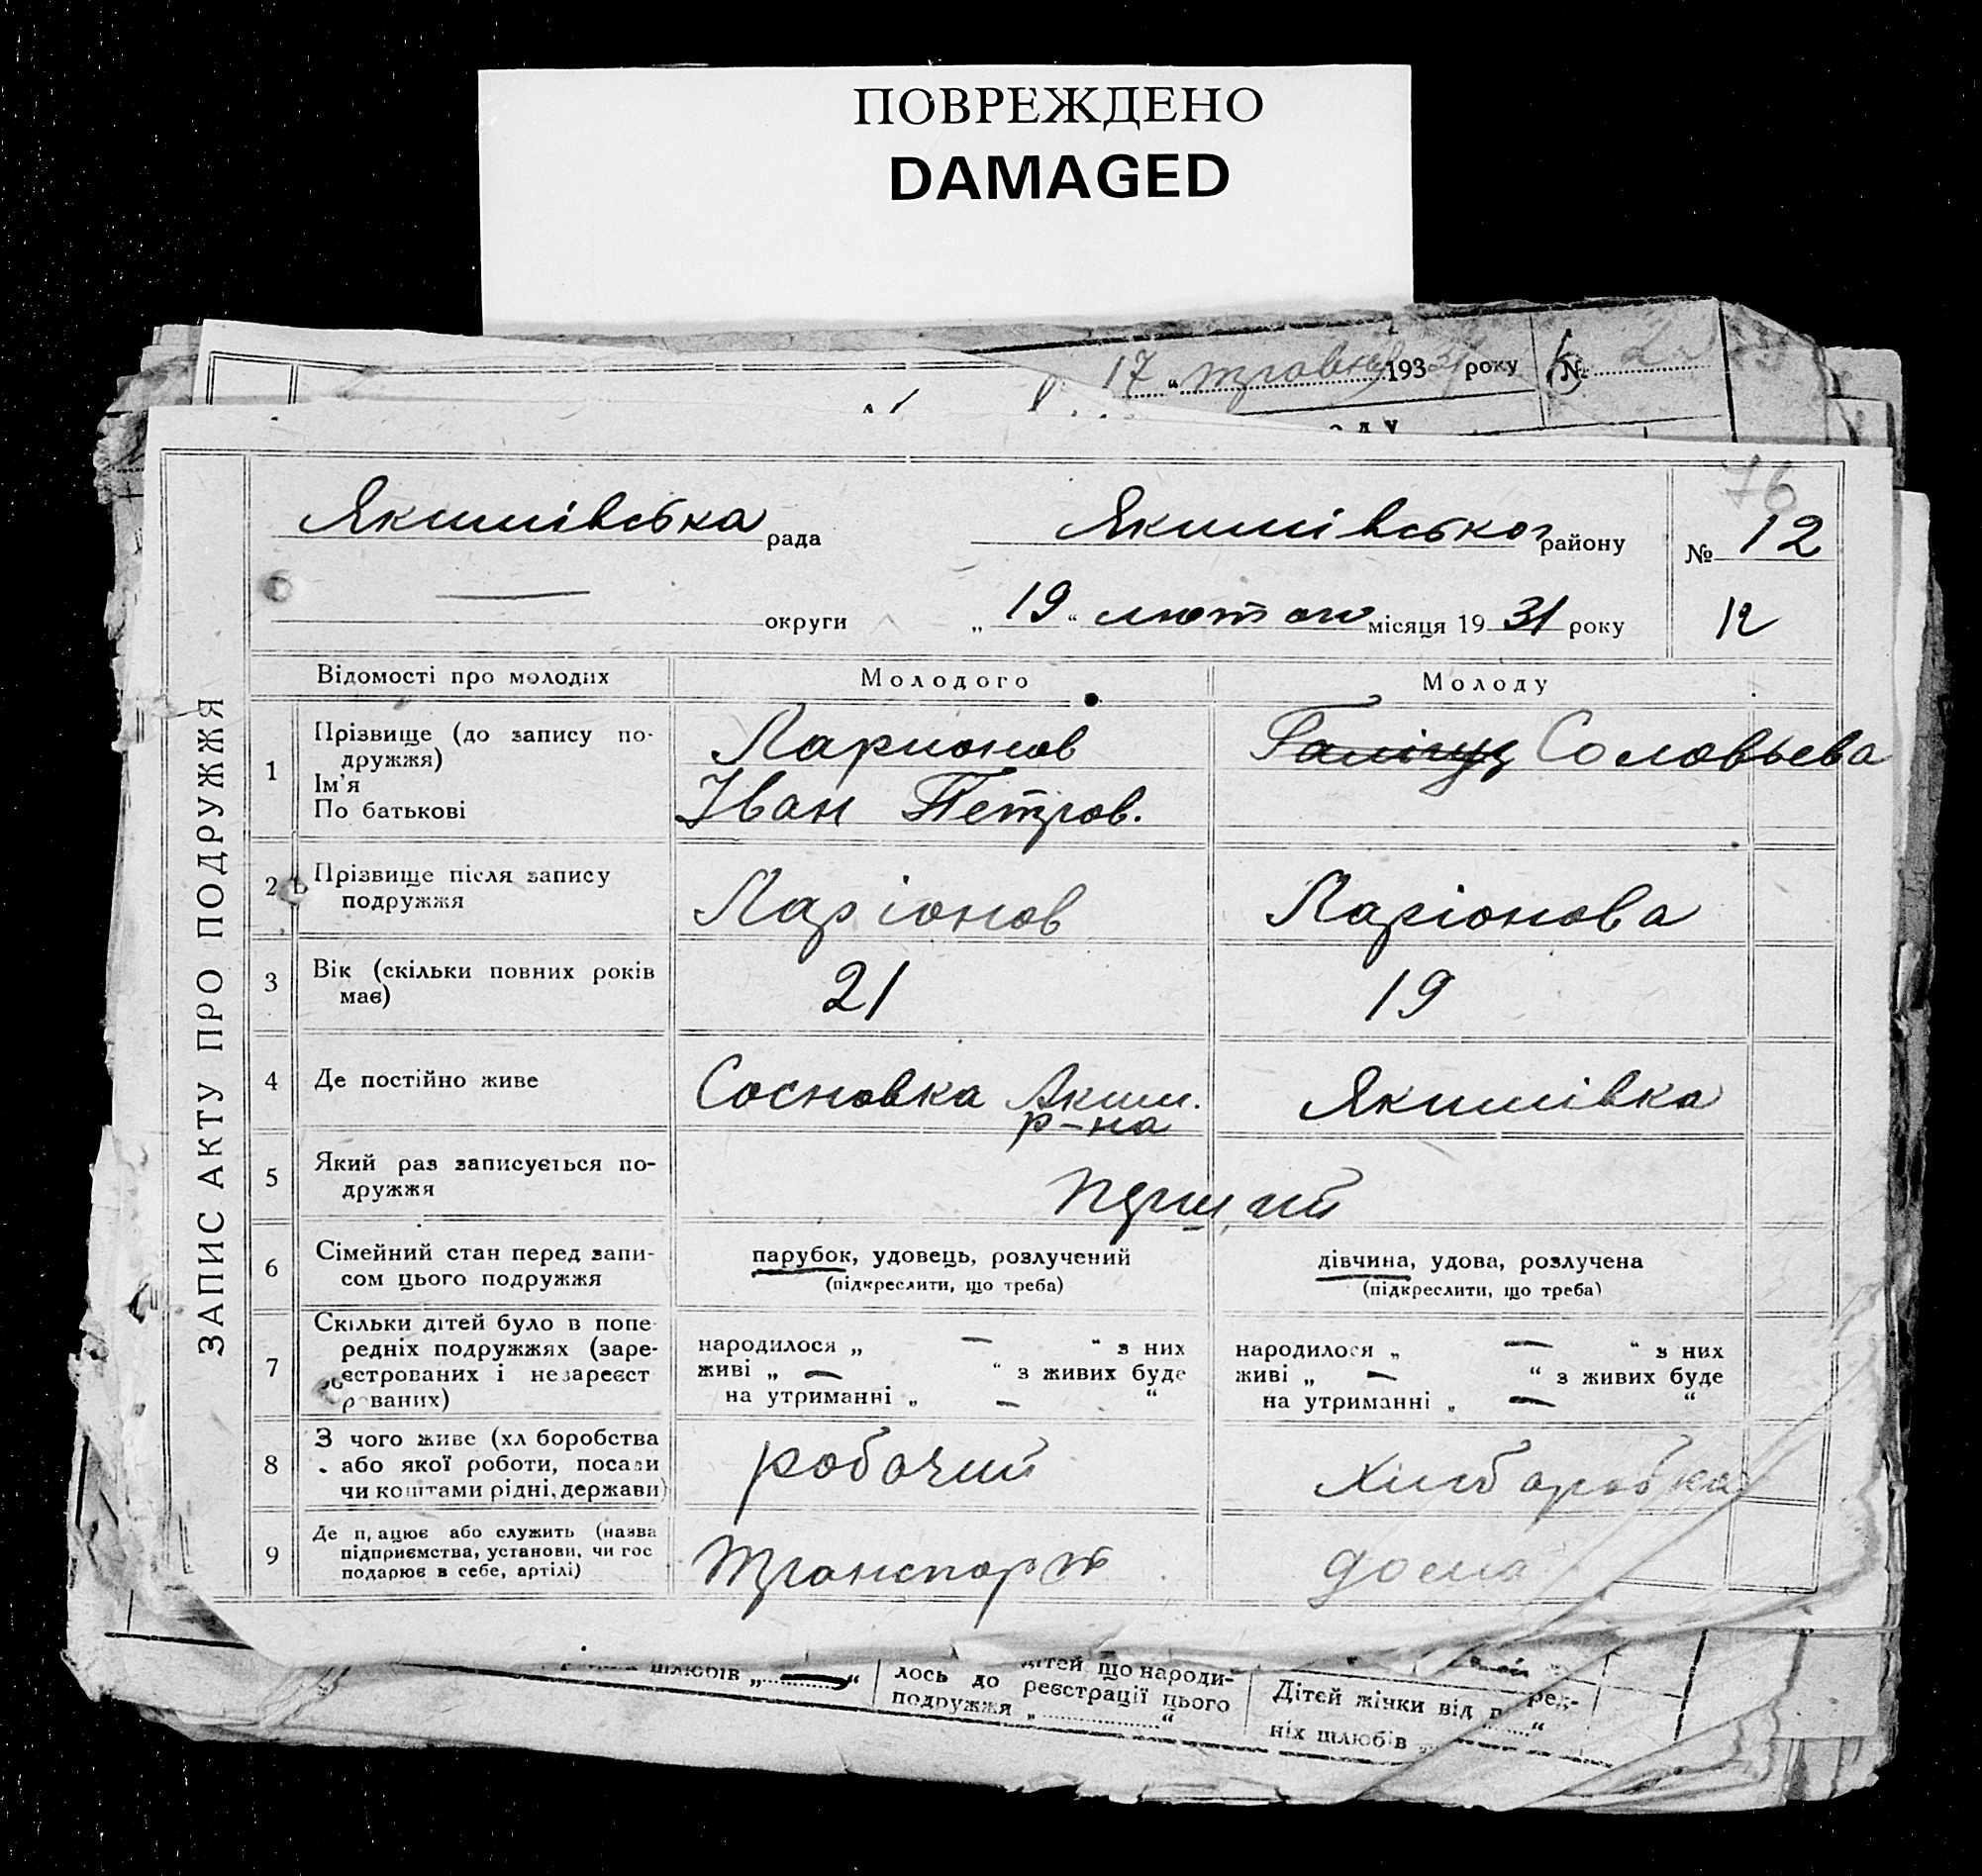 ПОВРЕЖДЕНО
DAMAGED
17 " травня 1931 року № 2
76
Якимівська рада Якимівського району № 12
округи „ 19 “ лютого місяця 19 31 року 12
ЗАПИС АКТУ ПРО ПОДРУЖЖЯ
Відомості про молодих Молодого Молоду
1 Прізвище (до запису по-
дружжя)
Ім'я
По батькові
Ларионов
Іван Петров.
Соловьева
2 Прізвище після запису
подружжя
Ларіонов Ларіонова
3 Вік (скільки повних років
має)
21 19
4 Де постійно живе
Сосновка Аким.
р-на
Якимівка
5 Який раз записується по-
дружжя
перший
6 Сімейний стан перед запи-
сом цього подружжя
парубок, удовець, розлучений
(підкреслити, що треба)
дівчина, удова, розлучена
(підкреслити, що треба)
7 Скільки дітей було в попе-
редніх подружжях (заре-
єстрованих і незареєст
рованих)
народилося „ — “ з них
живі „ — “ з живих буде
на утриманні „ — “
народилося „ — “ з них
живі „ — “ з живих буде
на утриманні „ — “
8 З чого живе (хліборобства
або якої роботи, посади
чи коштами рідні, держави)
робочий
9 Де працює або служить (назва
підприємства, установи, чи гос
подарює в себе, артілі)
транспорт дома
шлюбів „ — “
дітей що народи-
лось до реєстрації цього
подружжя „ “
Дітей жінки від поперед-
ніх шлюбів „ “